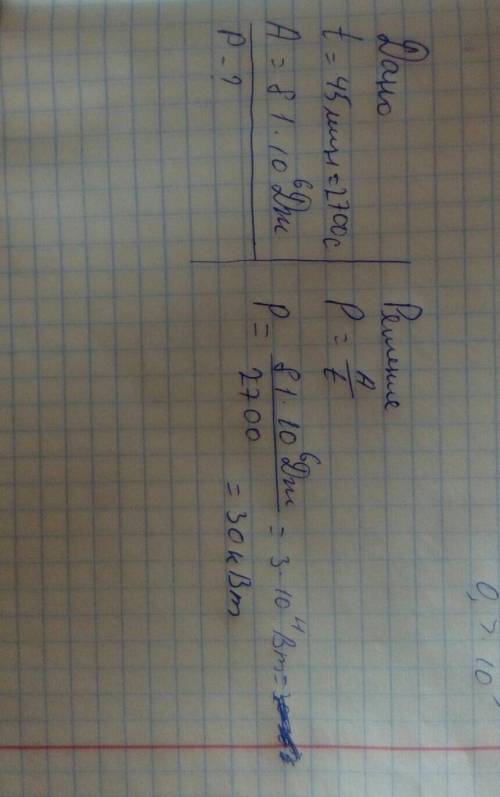 Дано
t = 45 мин = 2700 с
A = 81·10⁶ Дж
P - ?
Решение
P = A/t
P = 81·10⁶ Дж / 2700 = 3·10⁴ Вт =
= 30 кВт